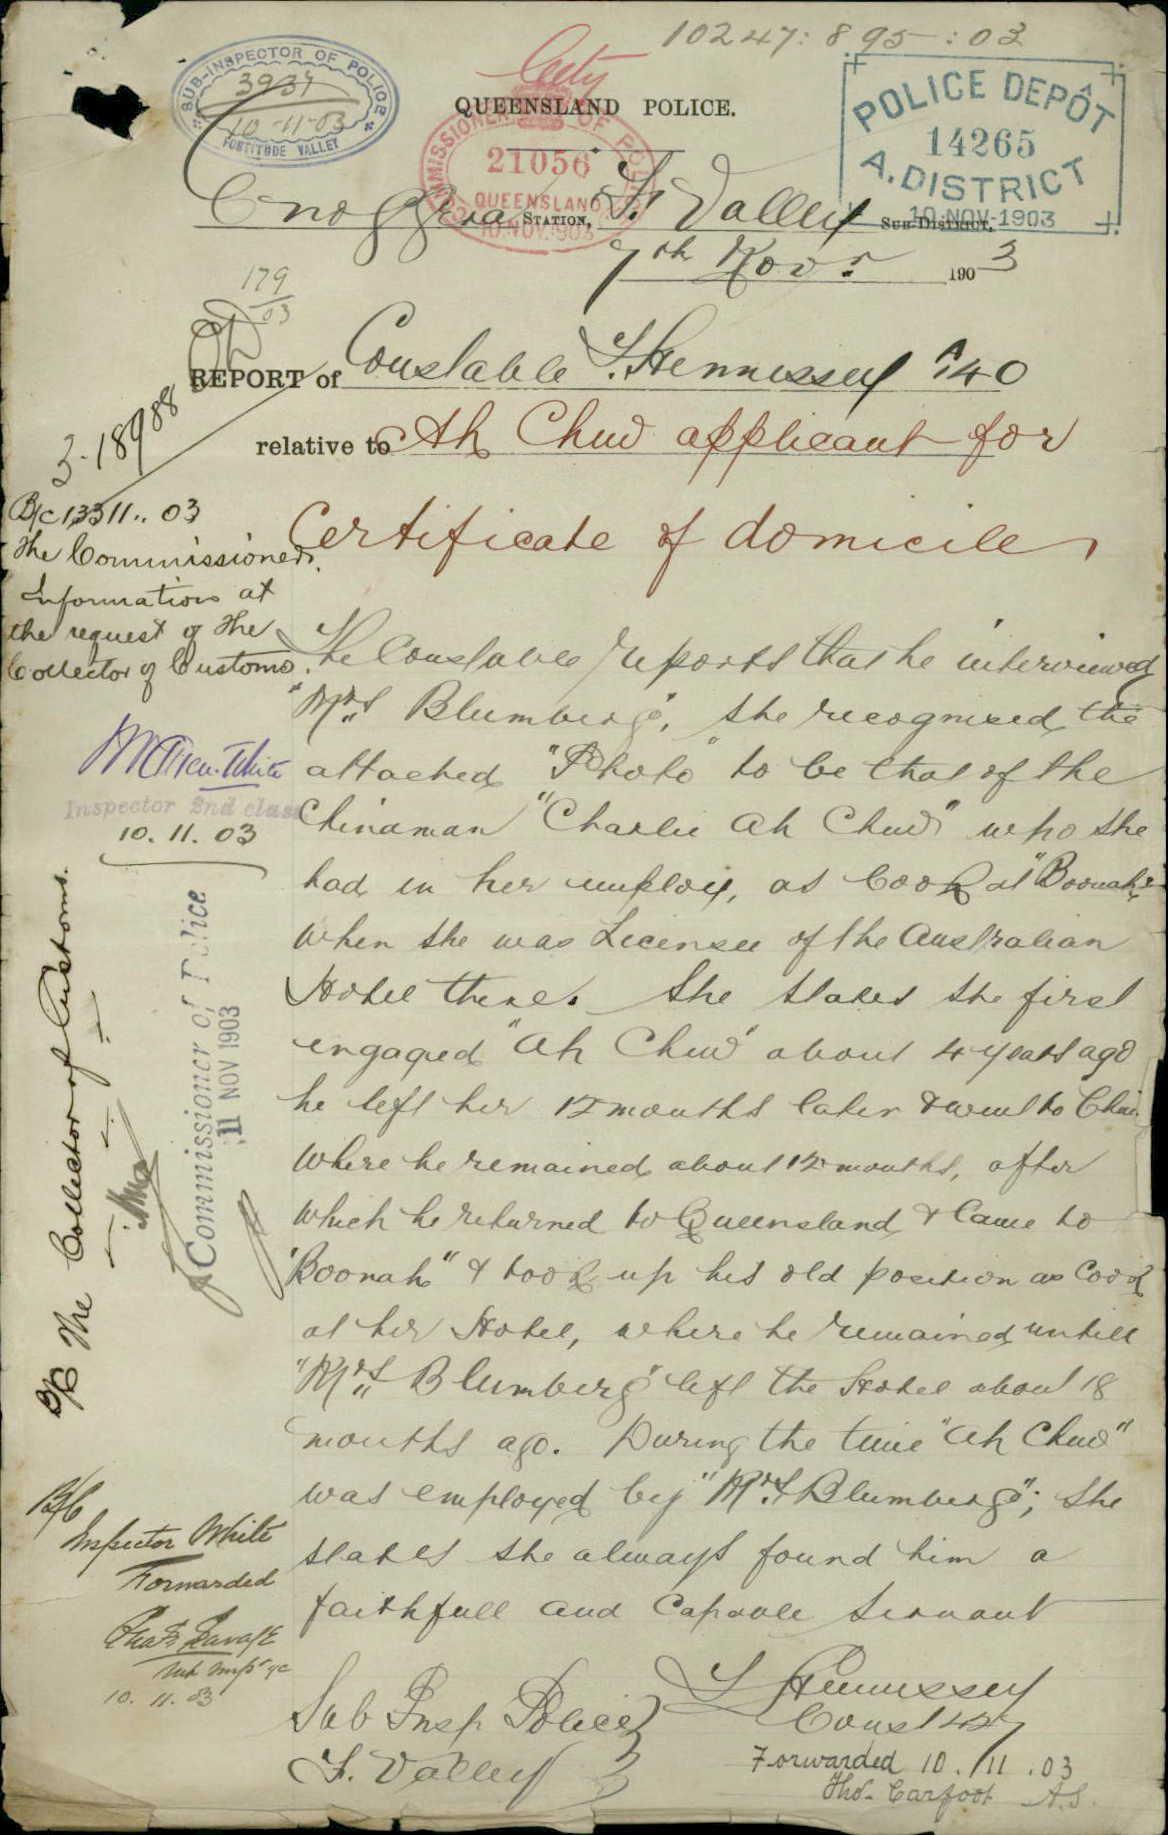 10247: 895 : 03
City
QUEENSLAND POLICE.
SUB-INSPECTOR OF POLICE
3937
10-11-03
FORTITUDE VALLEY
COMMISSIONER OF POLICE
21056
QUEENSLAND
10.NOV.1903
POLICE DEPÔT
14265
A. DISTRICT
10 NOV 1903
Enoggera STATION, F. Valley SUB-DISTRICT,
7th Novr. 1903
179
03
REPORT of Constable Hennessey 140
relative to Ah Chuo applicant for
Certificate of domicile
3.18988
B/C 13311.. 03
The Commissioner.
Information at
the request of the
Collector of Customs.
White
Inspector 2nd class
10. 11. 03
The Constable reports that he interviewed
"Mrs Blumberg", she recognised the
attached "Photo" to be that of the
Chinaman "Charlie Ah Chuo" who she
had in her employ, as Cook at "Boonah"
when she was Licensee of the Australian
Hotel there. She states she first
engaged "Ah Chuo" about 4 years ago
he left her 12 months later & went to Chi
where he remained about 12 months, after
which he returned to Queensland & Came to
"Boonah" & took up his old position as Cook
at her Hotel, where he remained untill
"Mrs Blumberg" left the Hotel about 18
months ago. During the time "Ah Chuo"
was employed by "Mrs Blumberg"; she
states she always found him a
faithfull and Capable servant
Hennessey
Const
Sub Insp Police
F. Valley
Forwarded 10. 11 . 03
Thos. Carfoot A.S.
B/C The Collector of Customs.
Commissioner of Police
11 NOV 1903
B/C
Inspector White
Forwarded
Chas Savage
Sub Inspr
10. 11. 03